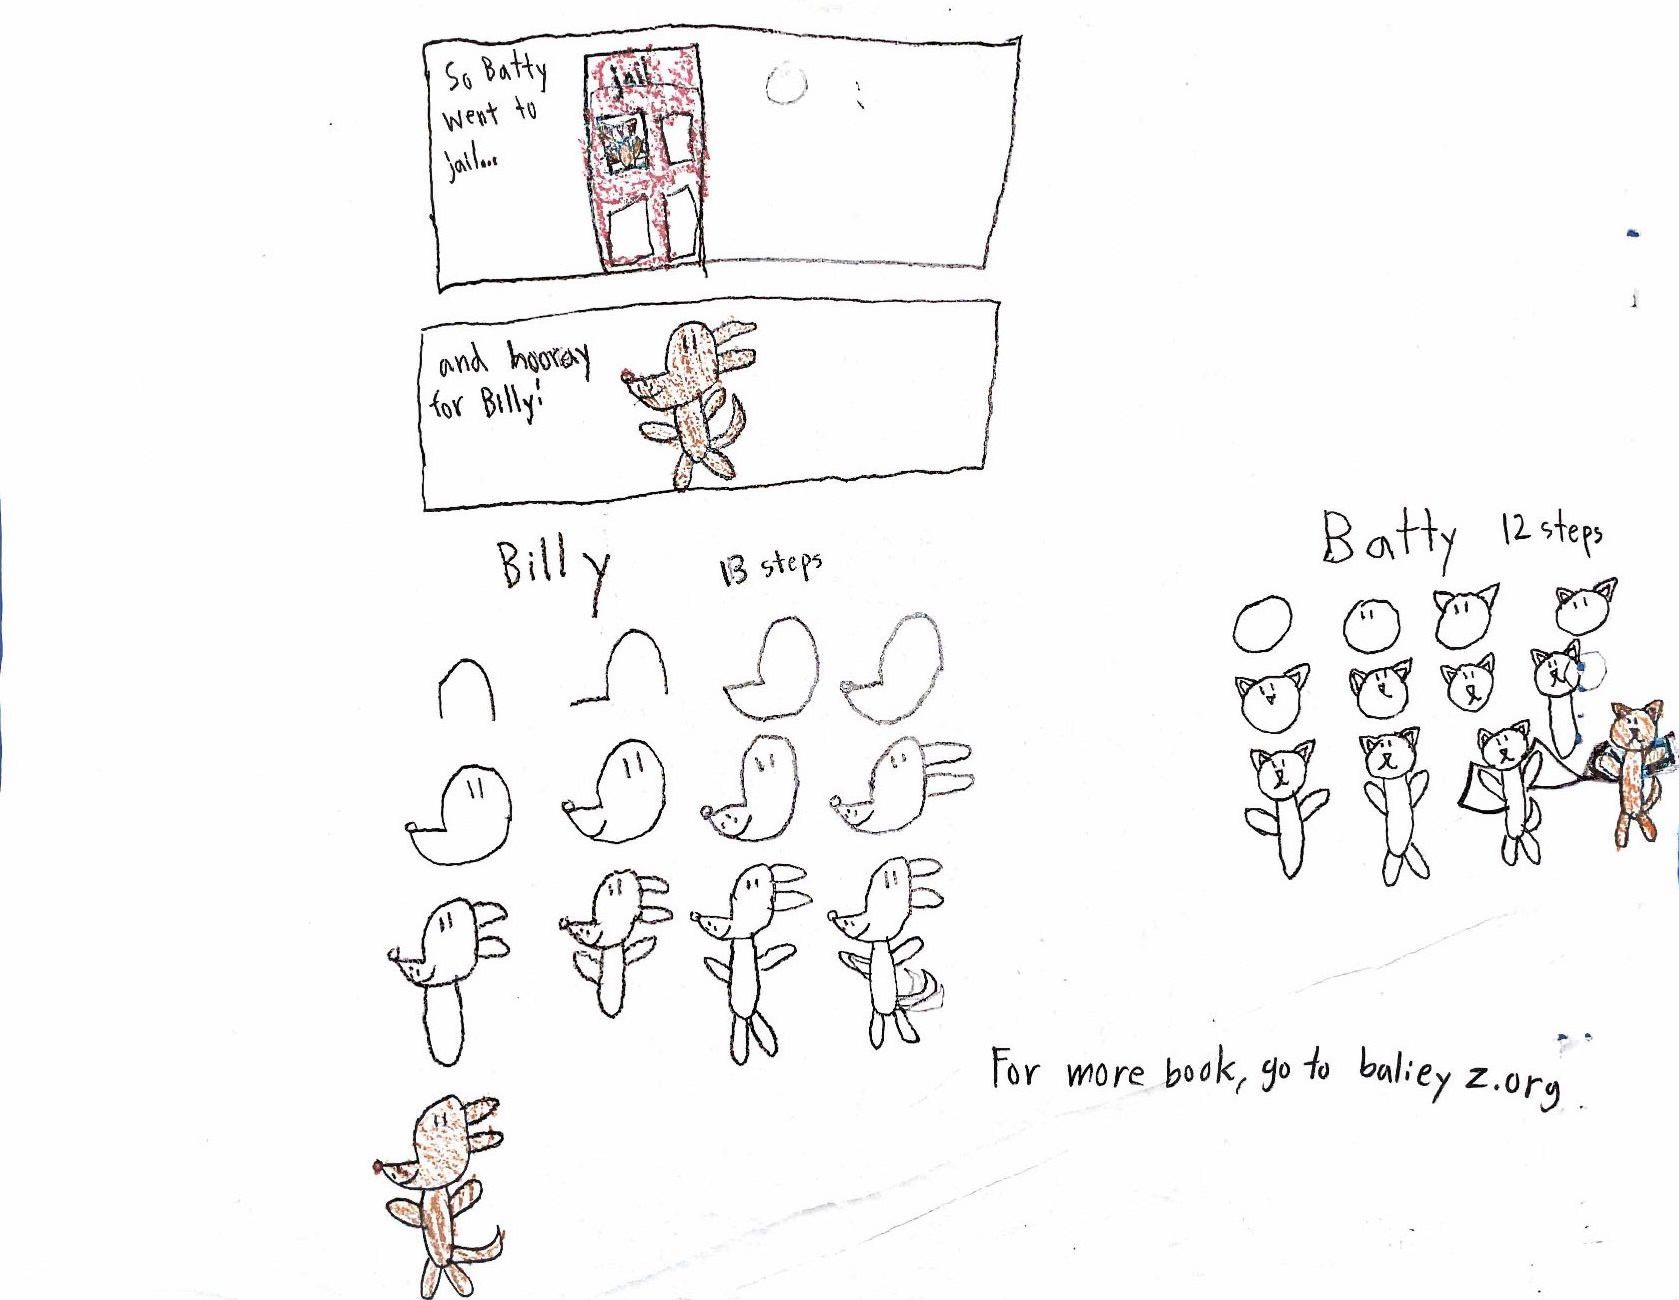 So Batty
went to
jail...
jail
and hooray
for Billy!
Billy 13 steps
Batty 12 steps
For more book, go to baliey z.org